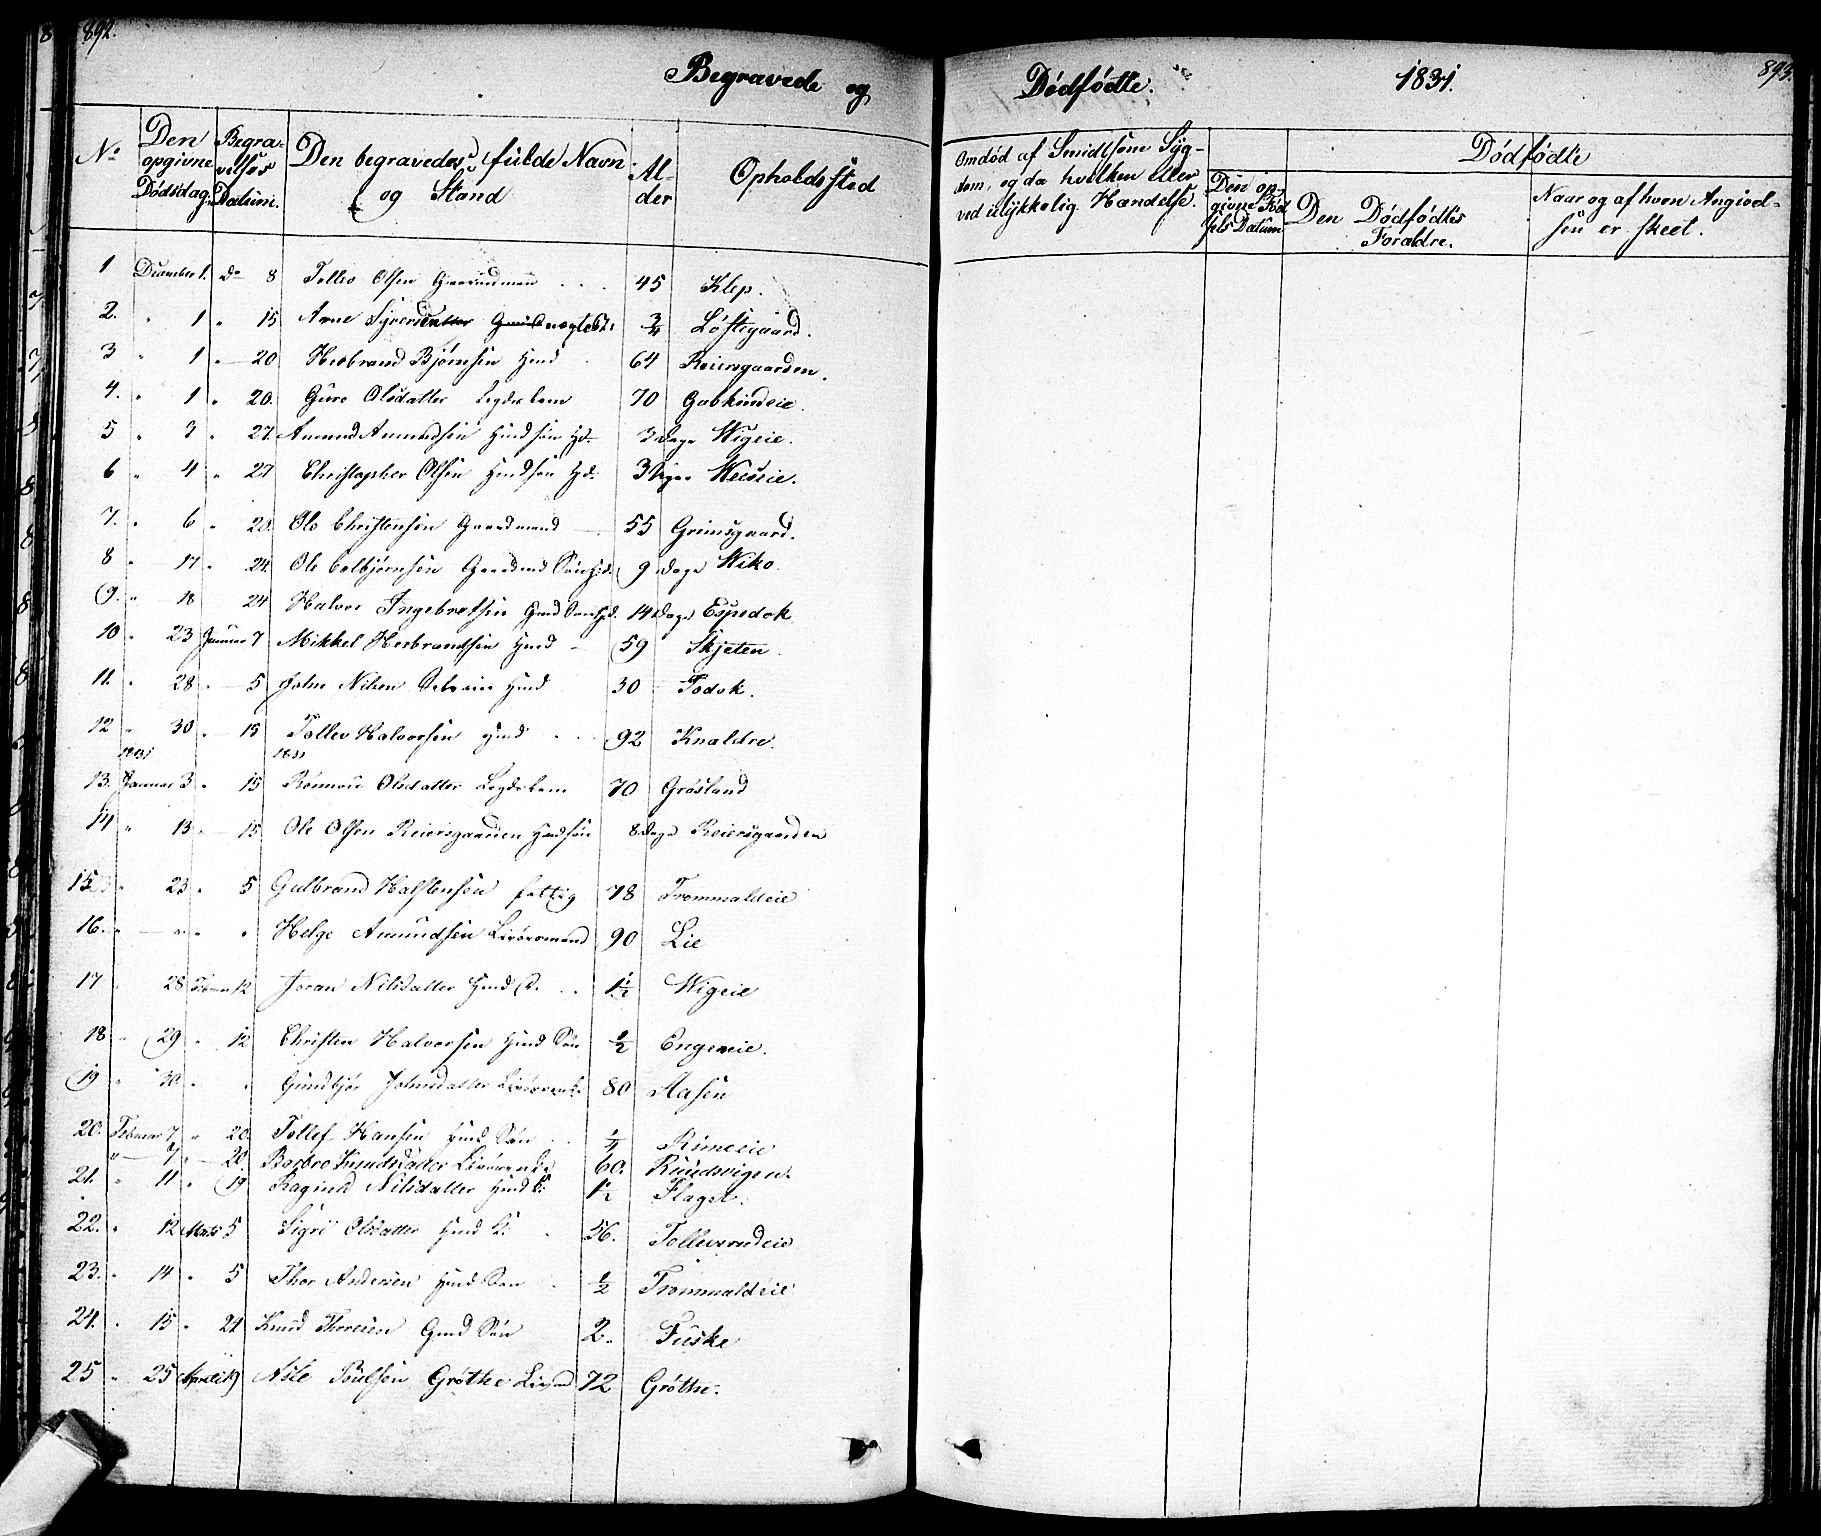 892.
Begravede og Dødfødte. 1831. 893.
No Den opgivne Dødsdag. Begravelses Datum. Den begravedes fulde Navn og Stand Alder Opholdssted
Omdød af Smidtsom Sygdom, og da hvilken eller ved ulykkelig Hændelse. Den opgivne Fødsels Datum Dødfødte
Den Dødfødtes Forældre. Naar og af hvem Angivelsen er skeet.
1 December 1. do 8 Tollev Olsen Gaardmand 45 Klep.
2. " 1 " 15 Arne Syversen 3/4 Løftsgaard.
3 " 1 " 20 Herbrand Bjørnsen Hmd 64 Reiersgaarden.
4. " 1 " 20. Guro Olsdatter Legdelem 70
5 " 3 " 27. Amund Amundsen Hmd søn 3 Dage Wigeie.
6 " 4 " 27 Christopher Olsen Hmdsøn 3 Uger
7. " 6 " 20. Ole Christensen Gaardmand 55 Grimsgaard.
8 " 17 " 24. Ole Colbjørnsen Gaardmd Søn 9 Dage Wiko.
9. " 18 24 Halvor Ingebretsen Gmd Søn 14 Dage Espedok
10 " 23 Januar 7 Mikkel Herbrandsen Hmd 59 Skjeten.
11. " 28 " 5 John Nilsen Hmd 30 Todok.
12 " 30 " 15 Tollev Halvorsen Hmd 92 Knaldre.
1831 1831
13. Januar 3 " 15 Rønnou Olsdatter Legdelem 70 Grøsland
14 " 13 " 15 Ole Olsen Reiersgaarden Hmdsøn 8 Dage Reiersgaarden
15 " 23 " 5 Gulbrand Halstensen fattig 78 Trommaldeie
16. " " " " Helge Amundsen Livøremand 90 Lie
17 " 28 Februar 12 Joran Nilsdatter Hmd D. 1½ Wigeie
18 " 29 " 12 Christen Halvorsen Hmd Søn ½ Engeneie.
19 " 30 " " Gundbjør Johnsdatter 80 Aasen
20. Februar 7 " 20. Tollef Hansen Hmd Søn ¼ Rimeeie
" 7 " 20. Barbro Knudsdatter 60. Ruudsvigen.
21. " 11 " 19 Raginld Nilsdatter Hmd K: 1½ Flaget.
22. " 12 Marts 5 Sigri Olsdatter Hmd K: 56. Tollevsrudeie
23. " 14 " 5 Thor Andersen Hmd Søn ½ Trommaldeie
24. " 15 " 21 Knud Thoresen Gmd Søn 2. Fuske
25 " 25 April 19 Asle Poulsen Grøthe 72 Grøthe.